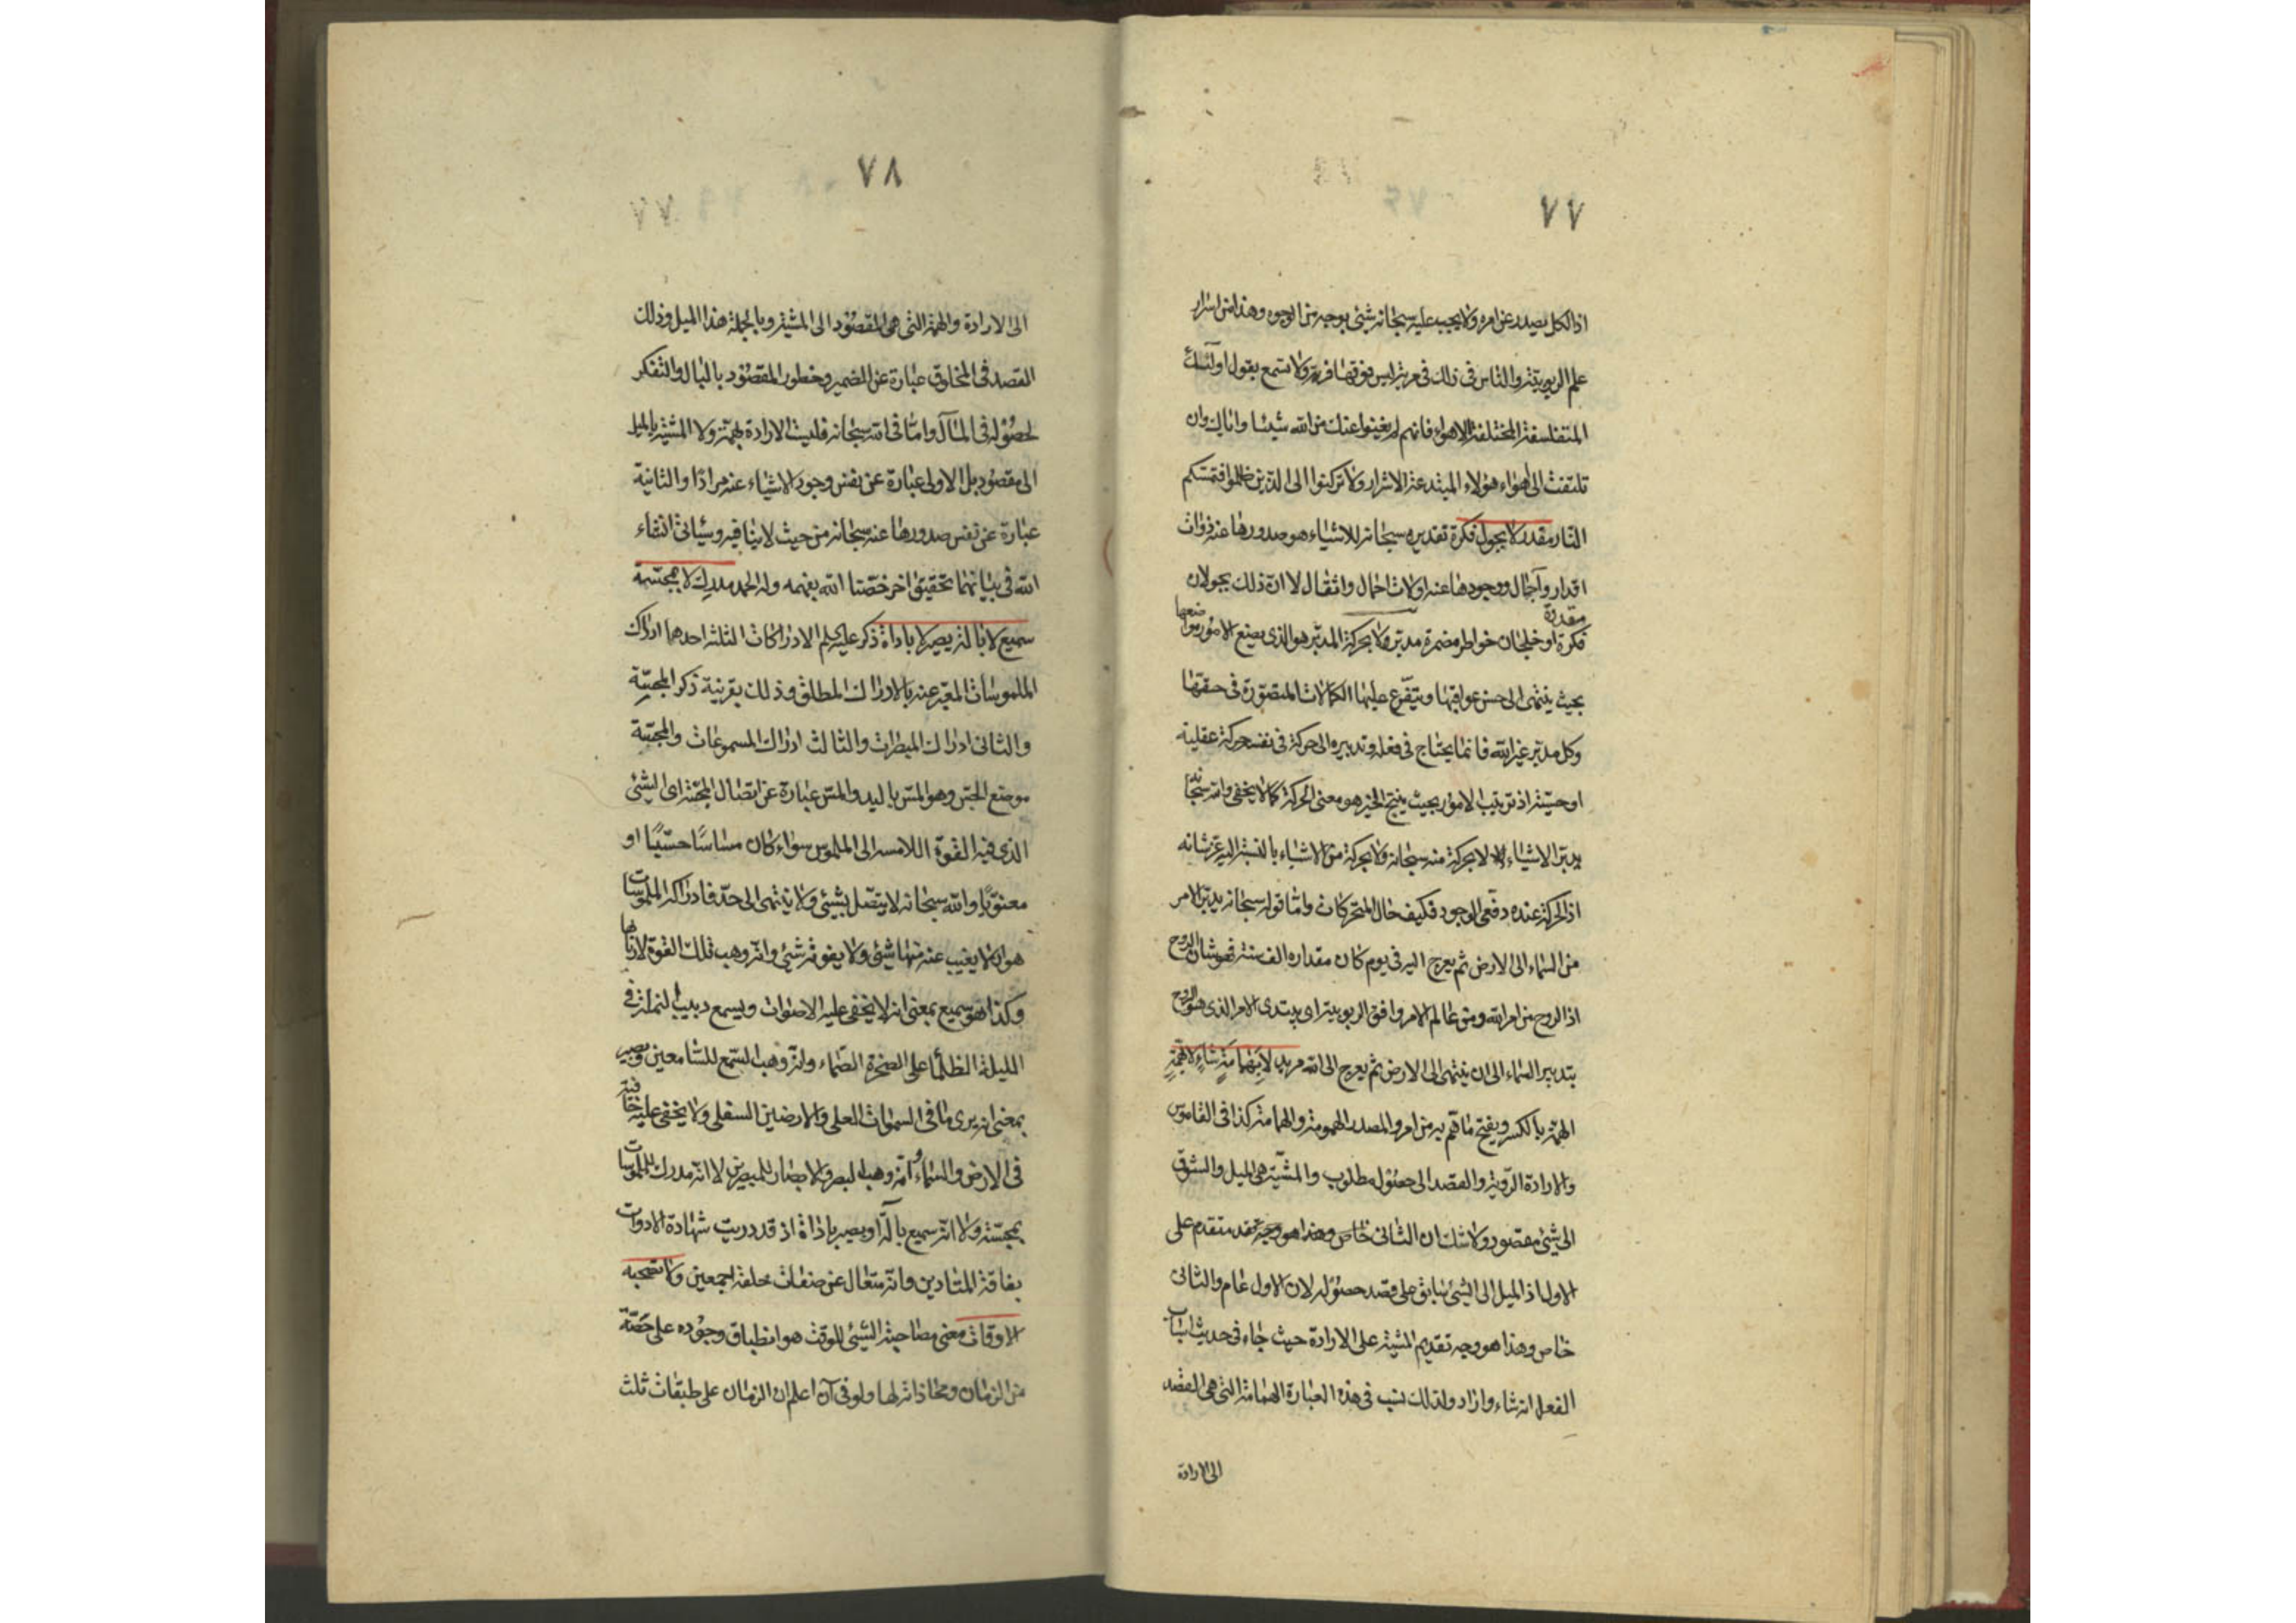 ٧٧
اذ الكل يصدر عن امره ولا يجب عليه سبحانه شئ بوجه من الوجوه وهذا من اسرار
علم الربوبيّة والناس فى ذلك فى مرية ليس فوقها فرية ولا تسمع بقول اولئك
المتفلسفة المختلفة الاهواء فانهم لم يغينوا عنك من الله شيئا واياك وان
تلتفت الى اهواء هؤلاء المبتدعة الاشرار ولا تركنوا الى الذين ظلموا فتمسّكم
النار مقدر لا بجول فكرة تقديره سبحانه للاشياء هو صدورها عنه ذوات
اقدار وآجال ووجودها عنه اولات احمال واثقال لا ان ذلك بجولان
فكرة او خلجان خواطر مضمرة مدبّر ولا بحركة المدبّر هو الذى يضع الامور مواضعها
مقدرة
بحيث ينتهى الى حسن عواقبها ويتفرّع عليها الكمالات المتصوّرة فى حقها
وكل مدبّر غير الله فانما يحتاج فى فعله وتدبيره الى حركة فى نفسه حركة عقلية
او حسّية اذ ترتيب الامور بحيث ينتج الخير هو معنى الحركة كما لا يخفى والله سبحانه
يدبّر الاشياء لا بحركة منه سبحانه ولا بحركة من الاشياء بالنسبة اليه عزّ شانه
اذ الحركة عنده دفعى الوجود فكيف حال المتحركات وامّا قوله سبحانه يدبّر الامر
من السماء الى الارض ثم يعرج اليه فى يوم كان مقداره الف سنة فهو شان الروح
اذ الروح من امر الله ومن عالم الامر وافق الربوبية اى يبتدى الامر الذى هو الروح
بتدبير السماء الى ان ينتهى الى الارض ثم يعرج الى الله مريد لا بهمامة شاء لا بهمّة
الهمّة بالكسر ويفتح ما همّ به من امر والمصدر الهمومة والهمامة كذا فى القاموس
والارادة الرّوية والقصد الى حصول مطلوب والمشيّة هى الميل والشوق
الى شئ مقصود ولا شك ان الثانى خاص وهذا هو وجه متقدم على
الاول اذ الميل الى الشئ سابق على قصد حصوله لان الاول عام والثانى
خاص وهذا هو وجه تقديم المشية على الارادة حيث جاء فى حديث اسباب
الفعل انه شاء واراد ولذلك نسب فى هذه العبارة الهمامة التى هى القصد
الى الارادة
٧٨
الى الارادة والهمة التى هى المقصود الى المشية وبالجملة هذا الميل وذلك
القصد فى المخلوق عبارة عن الضمير وخطور المقصود بالبال والتفكر
لحصوله فى المآل وامّا فى الله سبحانه فليست الارادة بهمّة ولا المشية بالميل
الى مقصود بل الاولى عبارة عن نفس وجود الاشياء عنه مرادًا والثانية
عبارة عن نفس صدورها عنه سبحانه من حيث لا ينافيه وسيأتى انشاء
الله فى بيانهما تحقيق اخر خصّنا الله بفهمه وله الحمد مدرك لا بمجسّة
سميع لا بالة بصير لا باداة ذكر عليه السلم الادراكات الثلثة احدها ادراك
الملموسات المعبّر عنه بالادراك المطلق وذلك بقرينة ذكر المجسّة
والثانى ادراك المبصرات والثالث ادراك المسموعات والمجسّة
موضع الجسّ وهو المسّ باليد والمسّ عبارة عن اتصال المجسّة اى الشئ
الذى فيه القوة اللامسة الى الملموس سواء كان مساسًا حسّيًا او
معنويًا والله سبحانه لا يتصل بشئ ولا ينتهى الى حدّ فادراكه الملموسات
هو ان لا يغيب عنه منها شئ ولا يفوته شئ وانّه وهب تلك القوة لاربابها
وكذا هو سميع بمعنى انه لا يخفى عليه الاصوات ويسمع دبيب النملة فى
الليلة الظلماء على الصخرة الصّماء وانّه وهب السّمع للسّامعين وبصير
بمعنى انه يرى ما فى السموات العلى والارضين السفلى ولا يخفى عليه خافية
فى الارض والسماء وانّه وهب البصر والابصار للمبصرين لا انّه مدرك للملموسات
بمجسّة ولا انّه سميع بآلة او بصير باداة اذ قد دريت شهادة الادوات
بفاقة المتادين وانّه متعال عن صفات خلقه اجمعين ولا تصحبه
الاوقات معنى مصاحبة الشئ للوقت هو انطباق وجوده على حصّة
من الزمان ومحاذاته لها ولو فى آن اعلم ان الزمان على طبقات ثلث